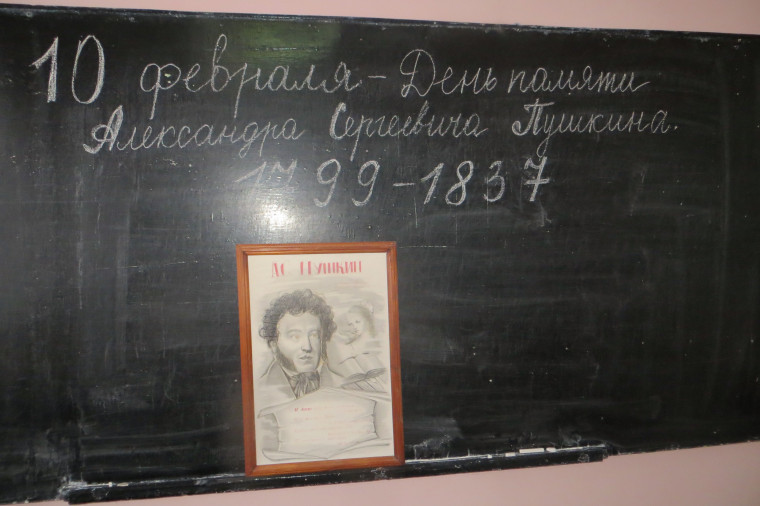 10 февраля - День памяти
Александра Сергеевича Пушкина.
1799-1837
АС ПУШКИН